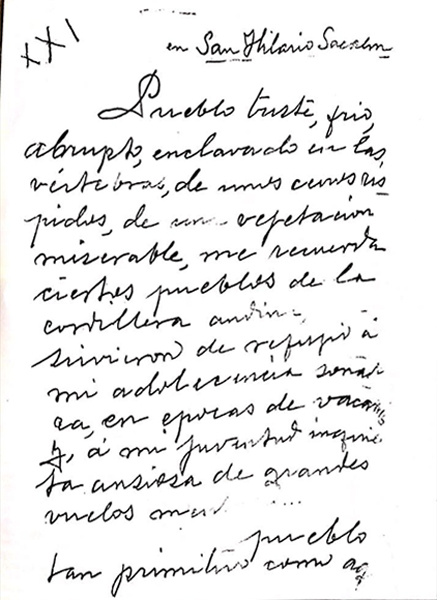 XXI
en San Hilario Sacalm
Pueblo triste, frio,
abrupto, enclavado en las,
vértebras, de unos cerros rís
pidos, de una vegetación
miserable, me recuerda
ciertos pueblos de la
cordillera andin
sirvieron de refugio á
mi adolecencia soñad
ra, en epocas de vacanis
y, á mi juventud inquie
ta ansiosa de grandes
vuelos
pueblo
tan primitivo como aq